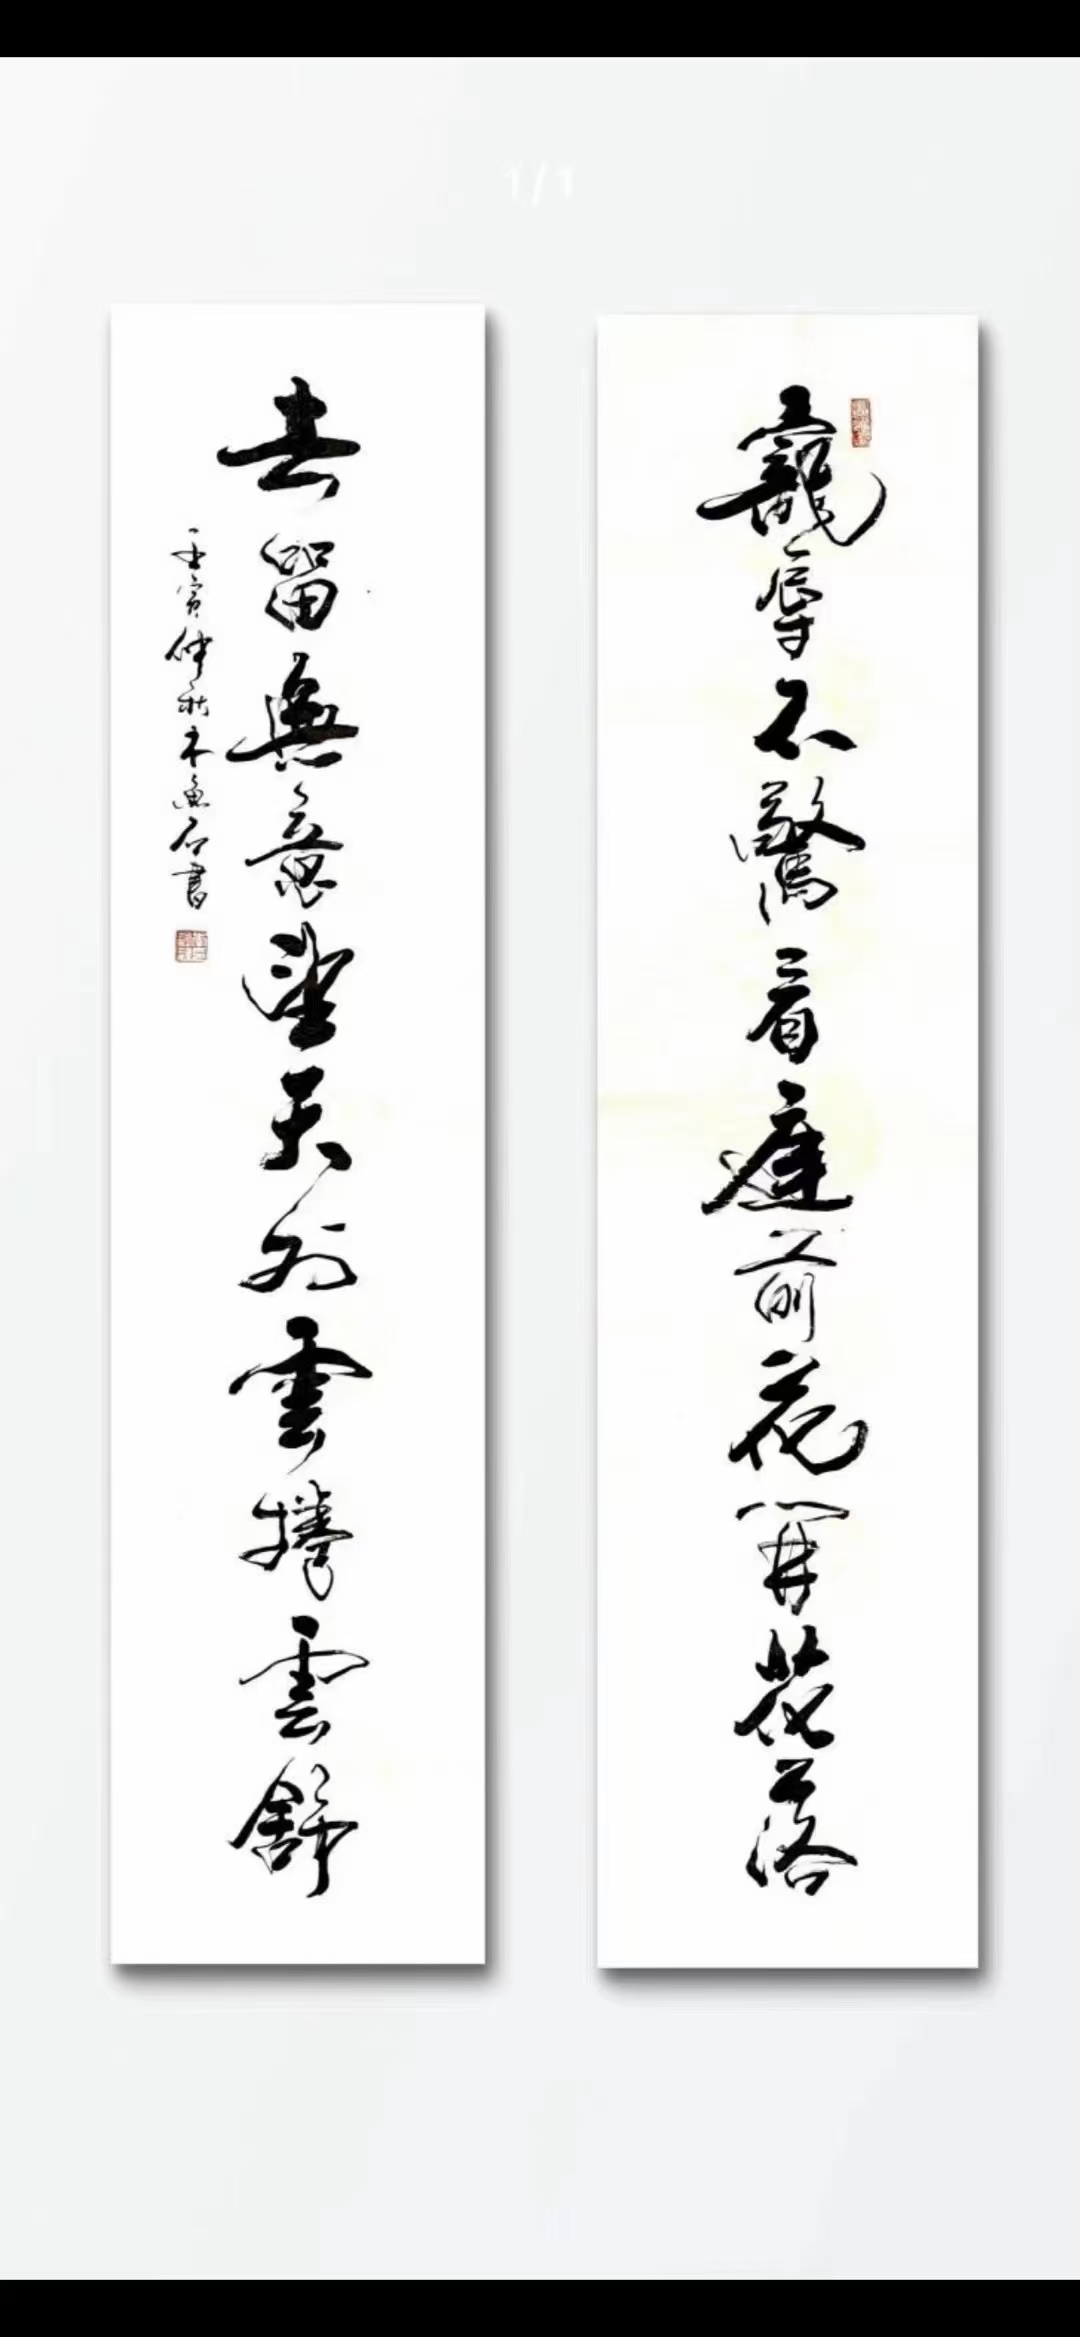 1/1
寵辱不驚看庭前花開花落
去留無意望天外雲捲雲舒
壬寅仲秋木魚石書